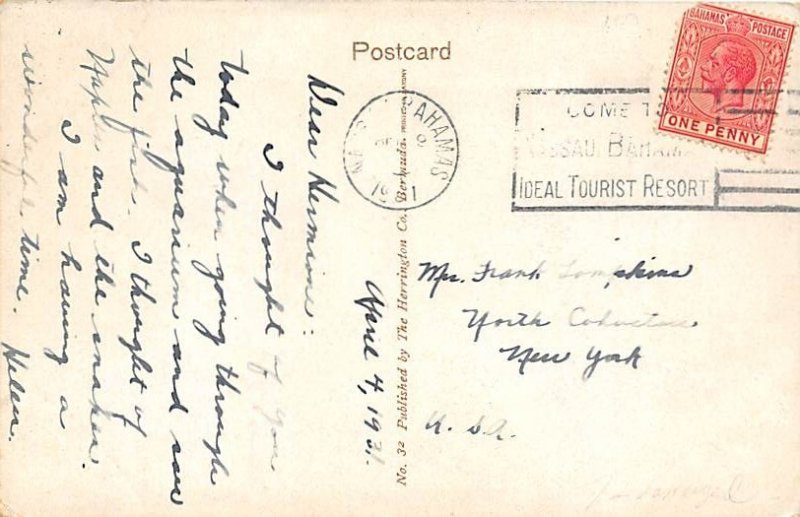 Postcard
Dear Hermione:
I thought of you
today when going through
the aquarium and saw
the fish. I thought of
Naples and the snakes.
I am having a
wonderful time.
Helen.
April 4, 1931.
No. 32 Published by The Herrington Co. Bermuda.
BAHAMAS
1931
BAHAMAS POSTAGE
ONE PENNY
COME T
SSAU BAHAMA
IDEAL TOURIST RESORT
Mrs. Frank Tompkins
North Cohocton
New York
U. S. A.